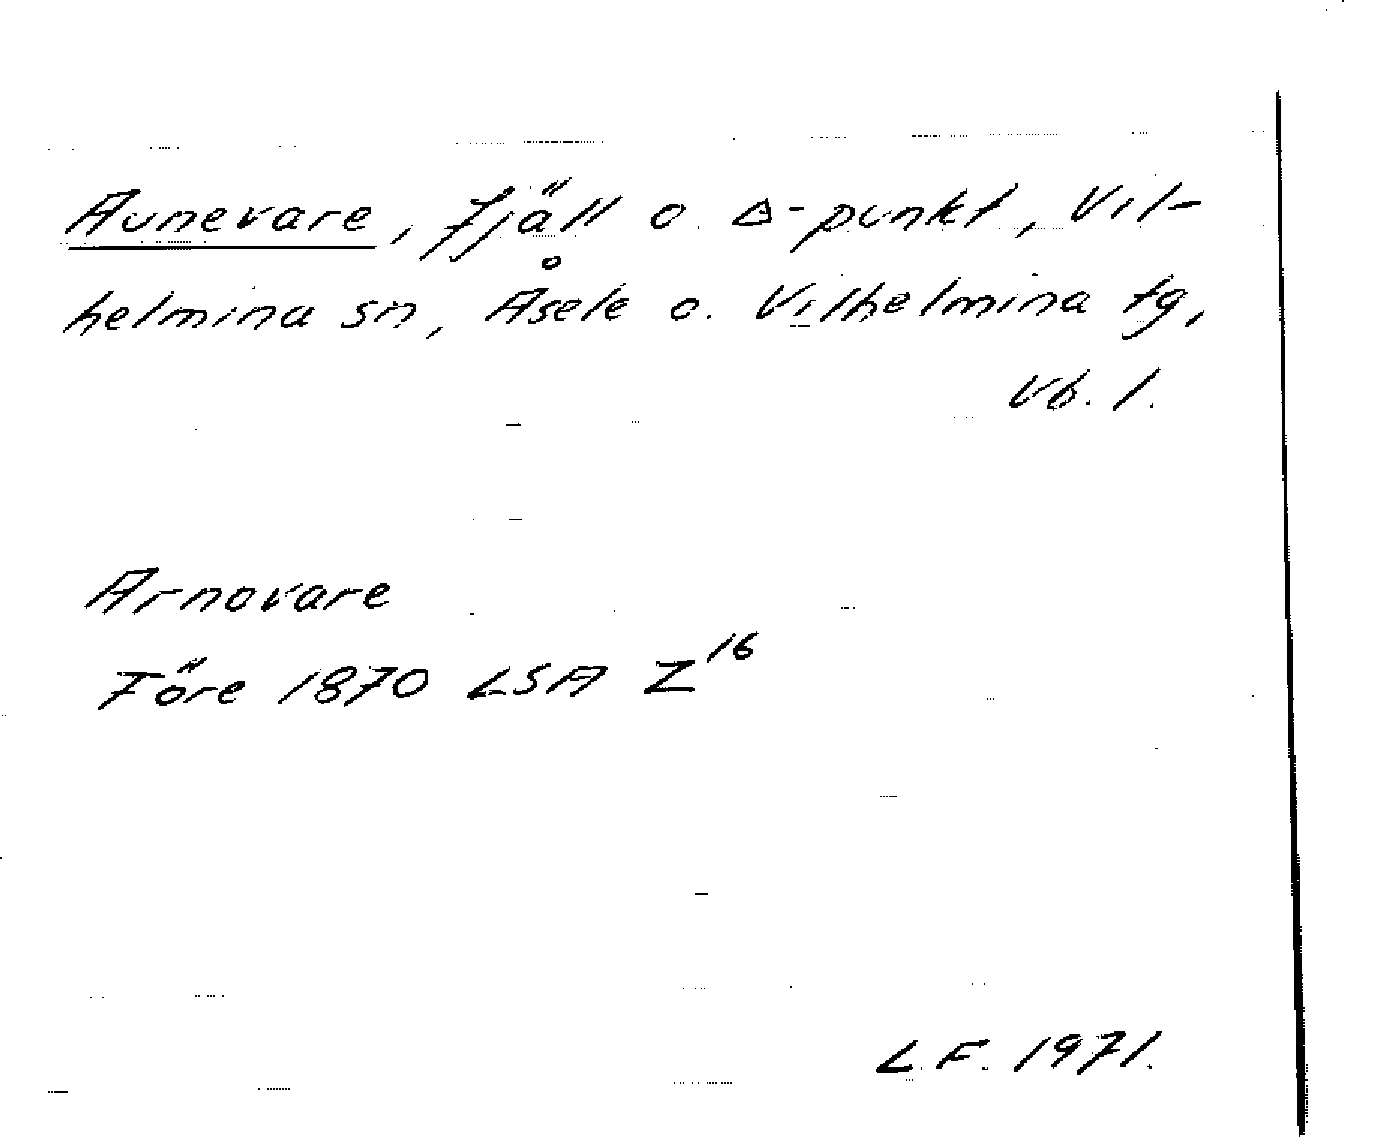 Aunevare, fjäll o. Δ-punkt, Vil-
helmina sn, Åsele o. Vilhelmina tg,
Vb. l.
Arnovare
Före 1870 LSA Z¹⁶
L.F. 1971.